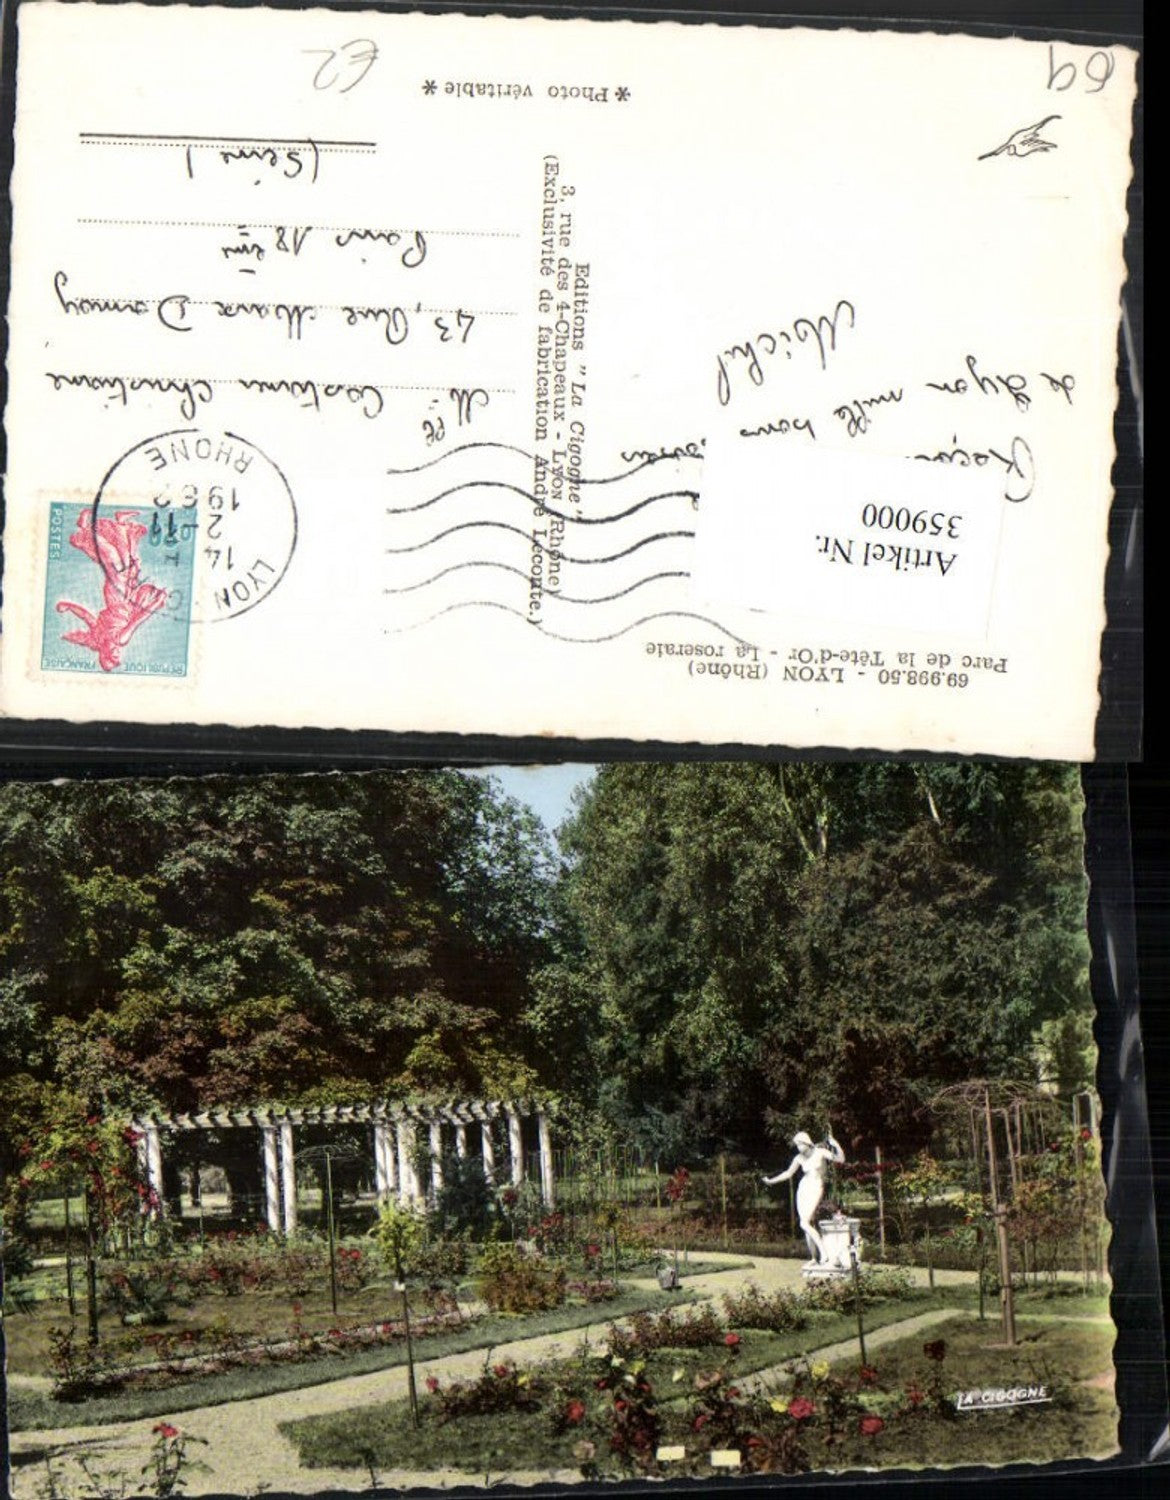 69.998.50 - LYON (Rhône)
Parc de la Tête-d'Or - La roseraie
Artikel Nr.
359000
de Lyon mille bons
Michel
Editions " La Cigogne "
3, rue des 4-Chapeaux - Lyon (Rhône)
(Exclusivité de fabrication André Leconte.)
* Photo véritable *
RÉPUBLIQUE FRANÇAISE
POSTES
LYON
RHONE
14
2
Mlle Christiane
43, Rue Marx Dormoy
Paris 18 ème
(Seine)
69
€2
LA CIGOGNE